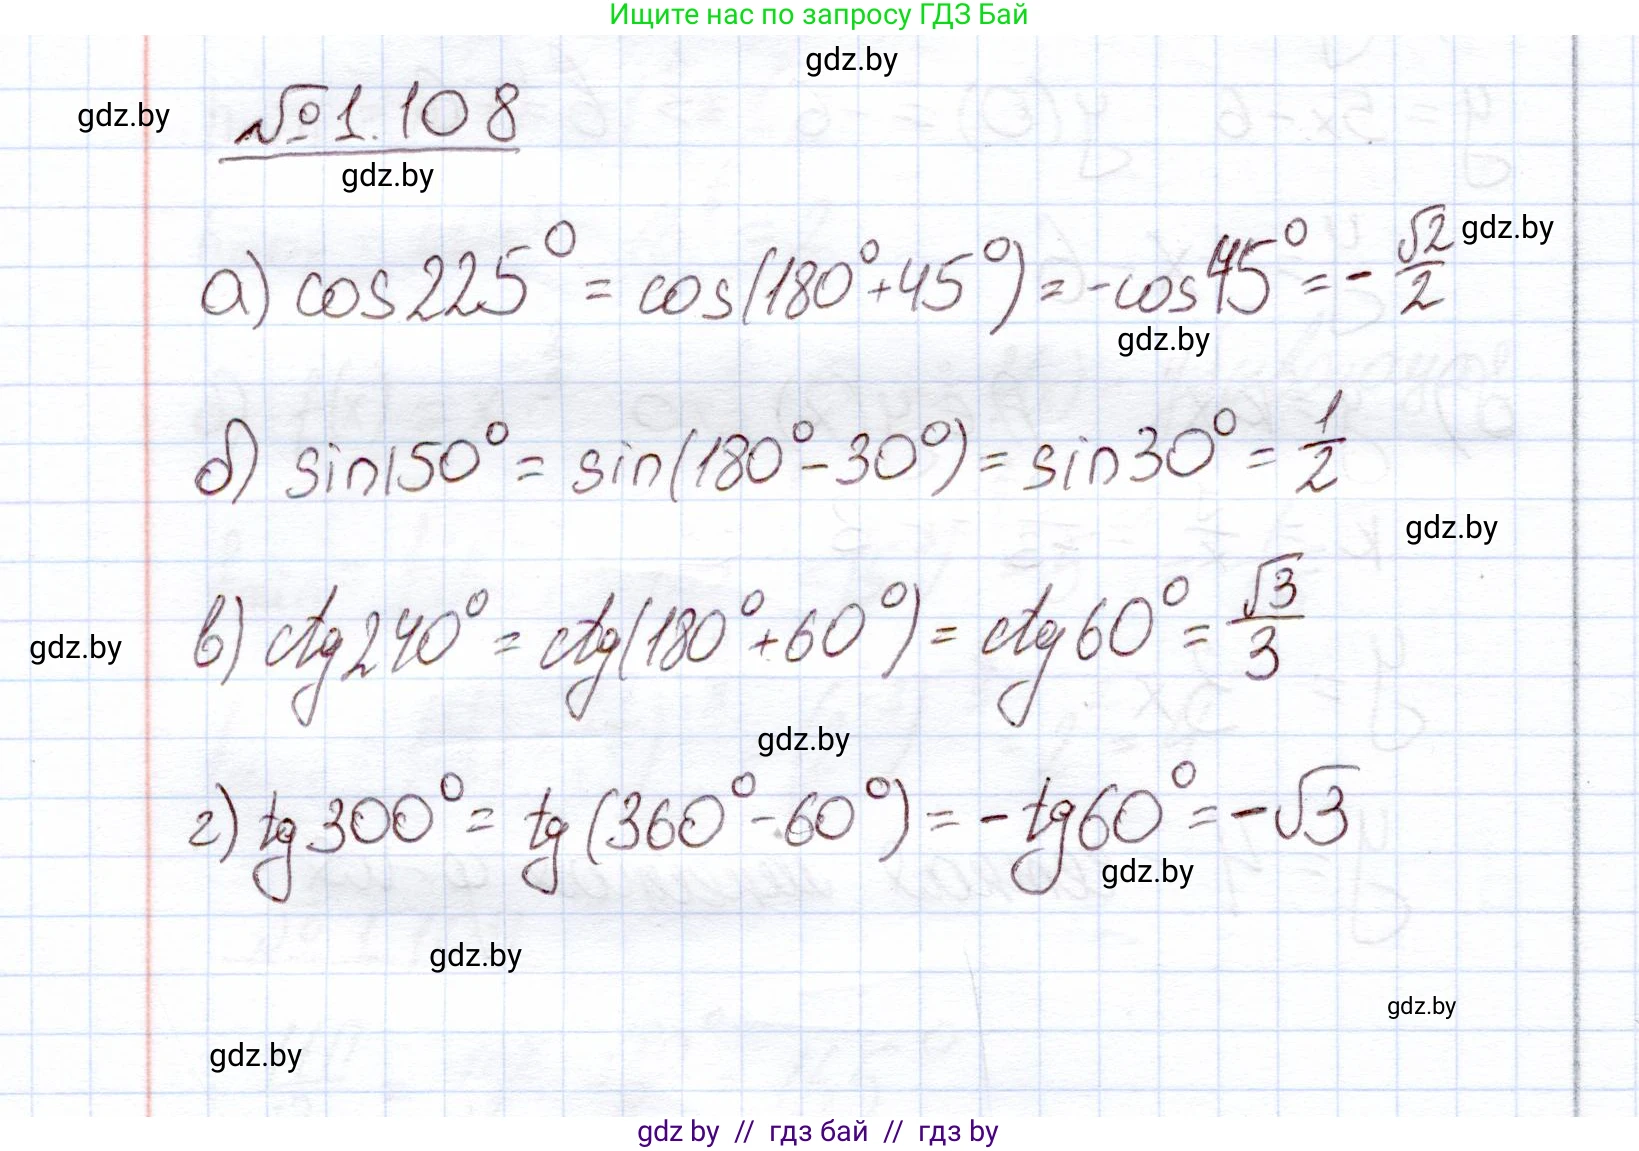 Ищите нас по запросу ГДЗ Бай
gdz.by
gdz.by
№1.108
gdz.by
gdz.by
а) cos225° = cos(180°+45°) = -cos45° = - √2/2
gdz.by
б) sin150° = sin(180°-30°) = sin30° = 1/2
gdz.by
в) ctg240° = ctg(180°+60°) = ctg60° = √3/3
gdz.by
gdz.by
г) tg300° = tg(360°-60°) = -tg60° = -√3
gdz.by
gdz.by
gdz.by
gdz.by
gdz by // гдз бай // гдз by